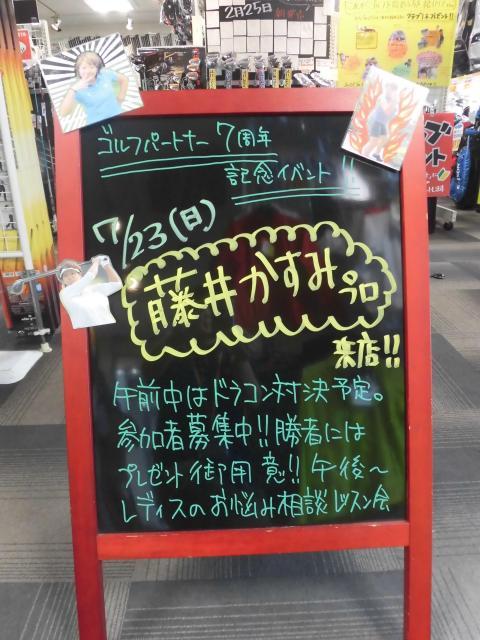 2月25日
ゴルフパートナー 7周年
記念イベント!!
7/23(日)
藤井かすみプロ
来店!!
午前中はドラコン対決予定。
参加者募集中!!勝者には
プレゼント御用意!!午後～
レディスのお悩み相談レッスン会